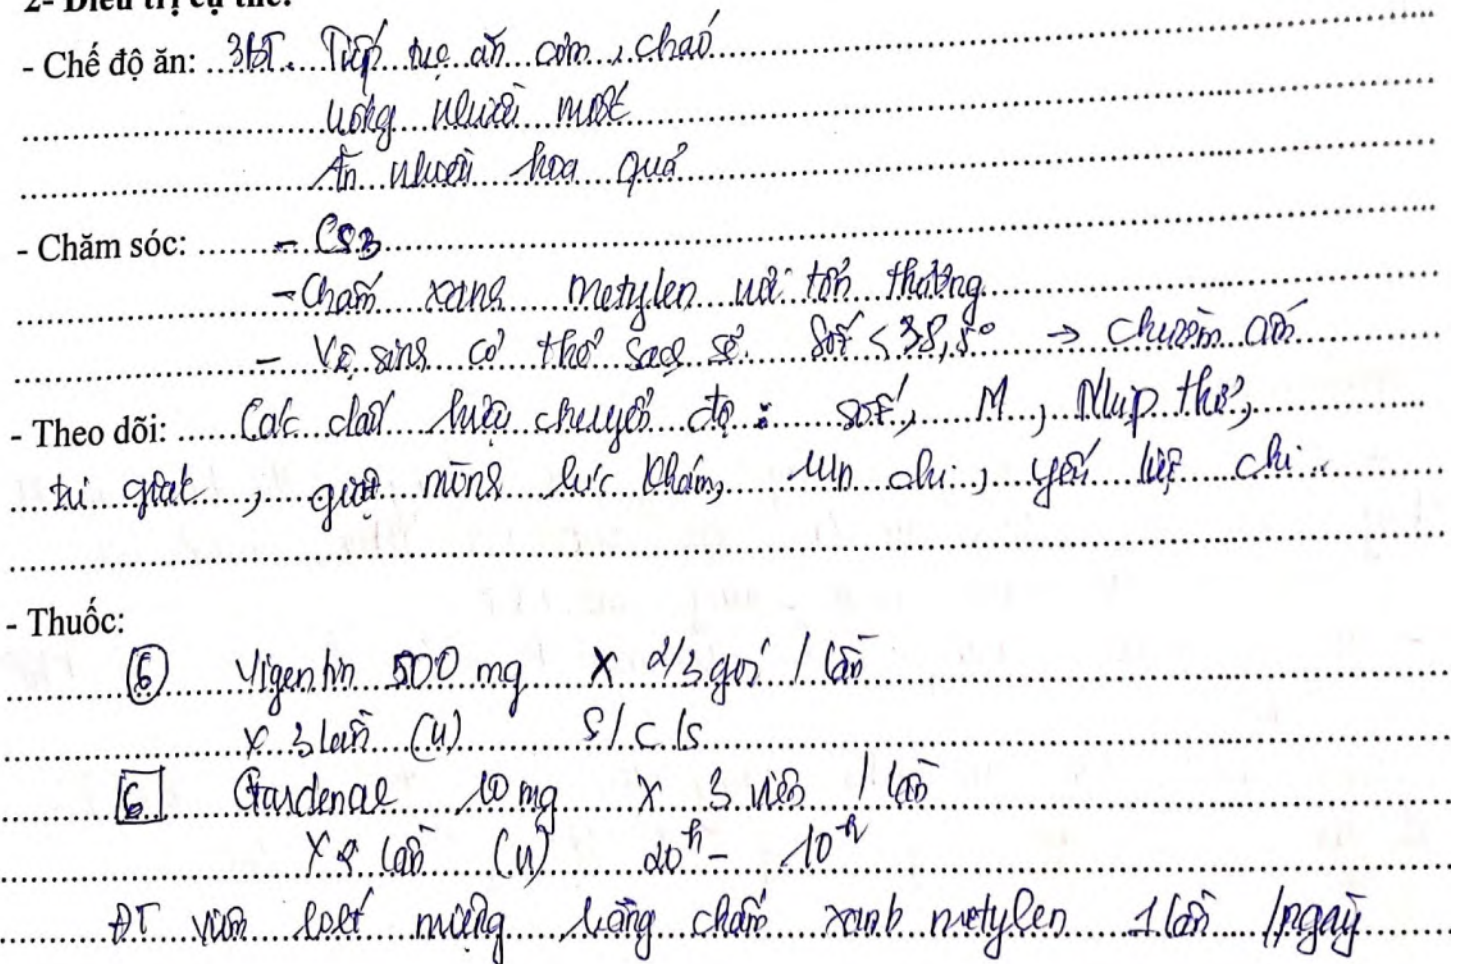 2- Điều trị cụ thể:
- Chế độ ăn: 3BT. Tiếp tục ăn cơm, cháo
uống nhiều nước
Ăn nhiều hoa quả
- Chăm sóc: - CS3
- Chấm xanh metylen nơi tổn thương
- Vệ sinh cơ thể sạch sẽ. Sốt < 38,5° → chườm ấm
- Theo dõi: Các dấu hiệu chuyển độ: sốt, M, Nhịp thở,
giật mình lúc khám, run chi, yếu liệt chi
- Thuốc:
(6) Vigentin 500 mg x 2/3 gói / lần
x 3 lần (u) S/C/S
[6] Gardenal 10 mg x 3 viên / lần
x 2 lần (u) 20h - 10h
ĐT viêm loét miệng bằng chấm xanh metylen 1 lần /ngày